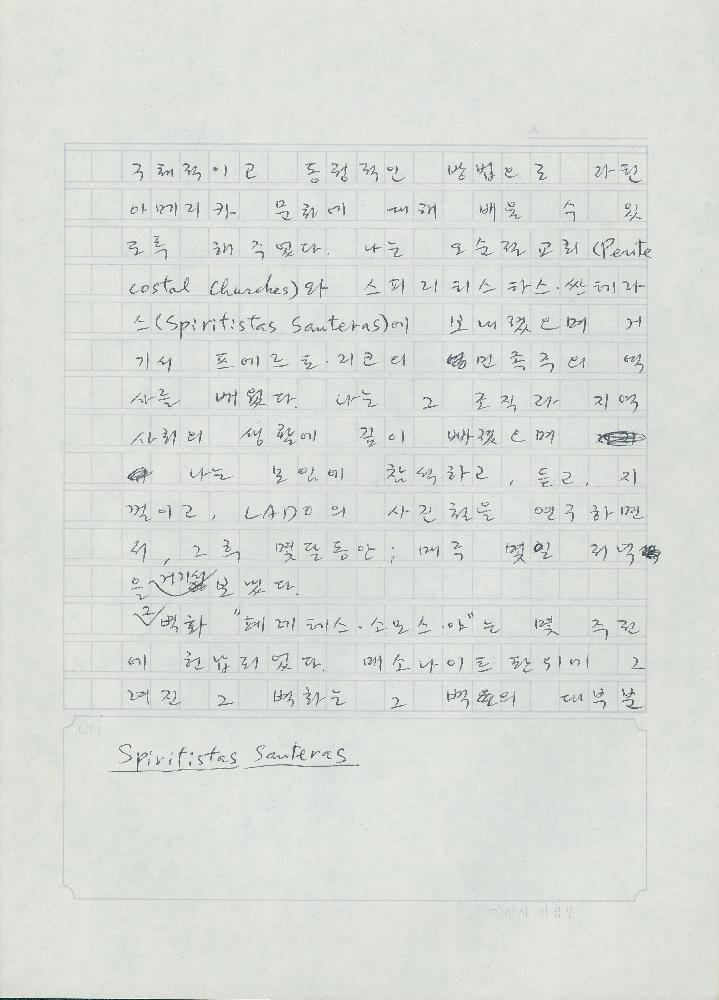 구체적이고 통렬적인 방법으로 라틴
아메리카 문화에 대해 배울 수 있
도록 해 주었다. 나는 오순절 교회 (Pente
costal Churches)와 스피리티스타스·싼테라
스(Spiritistas Santeras)에 보내졌으며 거
기서 프에르토·리코의 민족주의 역
사를 배웠다. 나는 그 조직과 지역
사회의 생활에 깊이 빠졌으며
나는 모임에 참석하고, 듣고, 지
껄이고, LADO의 사진철을 연구하면
서, 그 후 몇달동안; 매주 몇일 저녁
을 거기서 보냈다.
그 벽화 "페레테스·소모스·야"는 몇 주전
에 헌납되었다. 매소나이트 판위에 그
려진 그 벽화는 그 벽의 대부분
(21)
Spiritistas Santeras